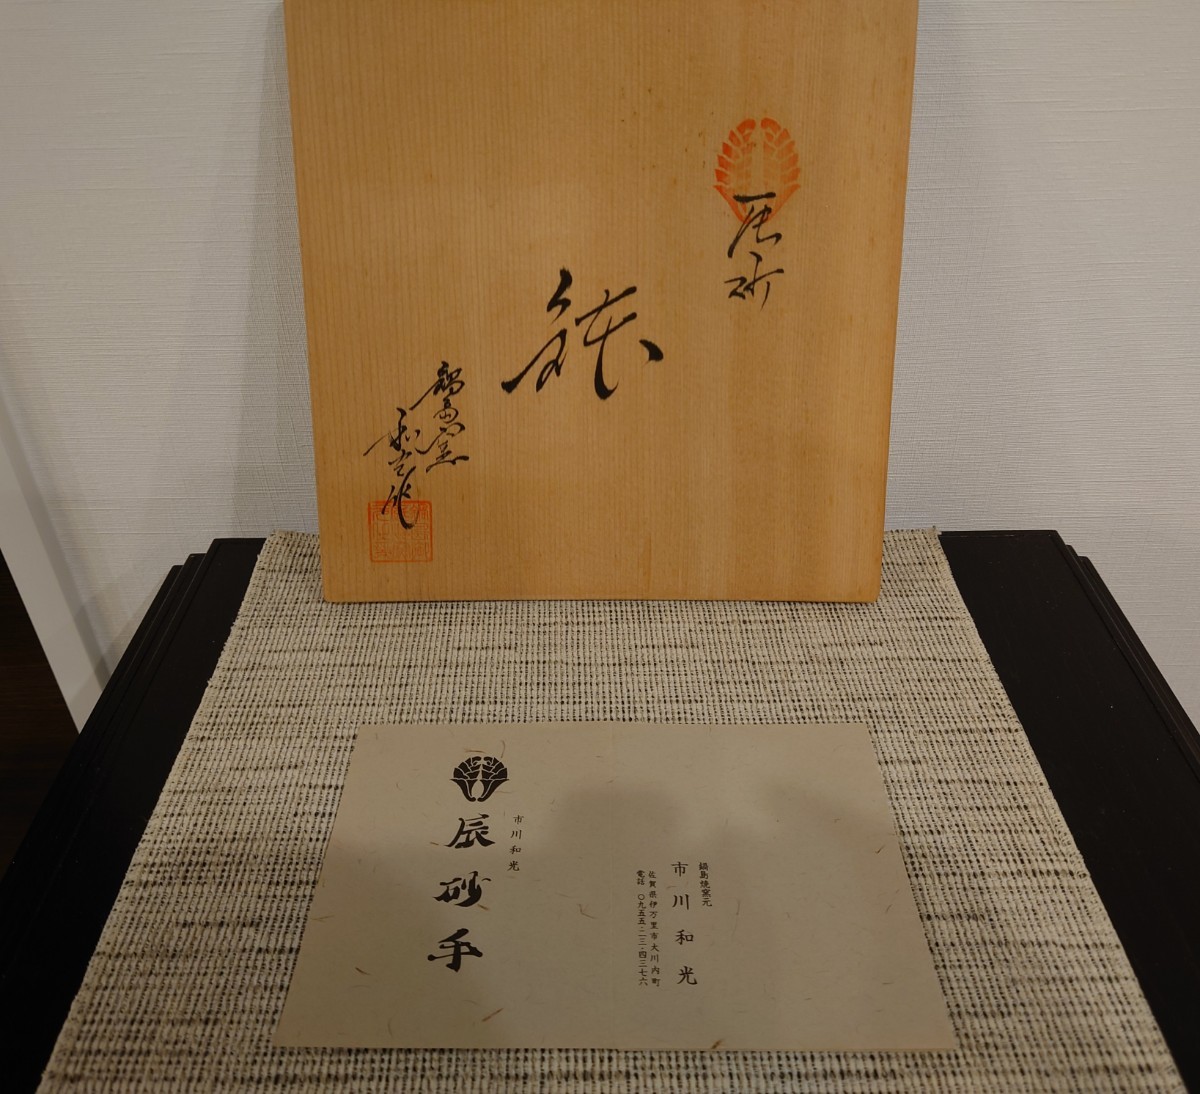 辰砂
鉢
鍋島窯
和光作
市川和光
辰砂手
鍋島焼窯元
市川和光
佐賀県伊万里市大川内町
電話 〇九五五・二三・四三七六